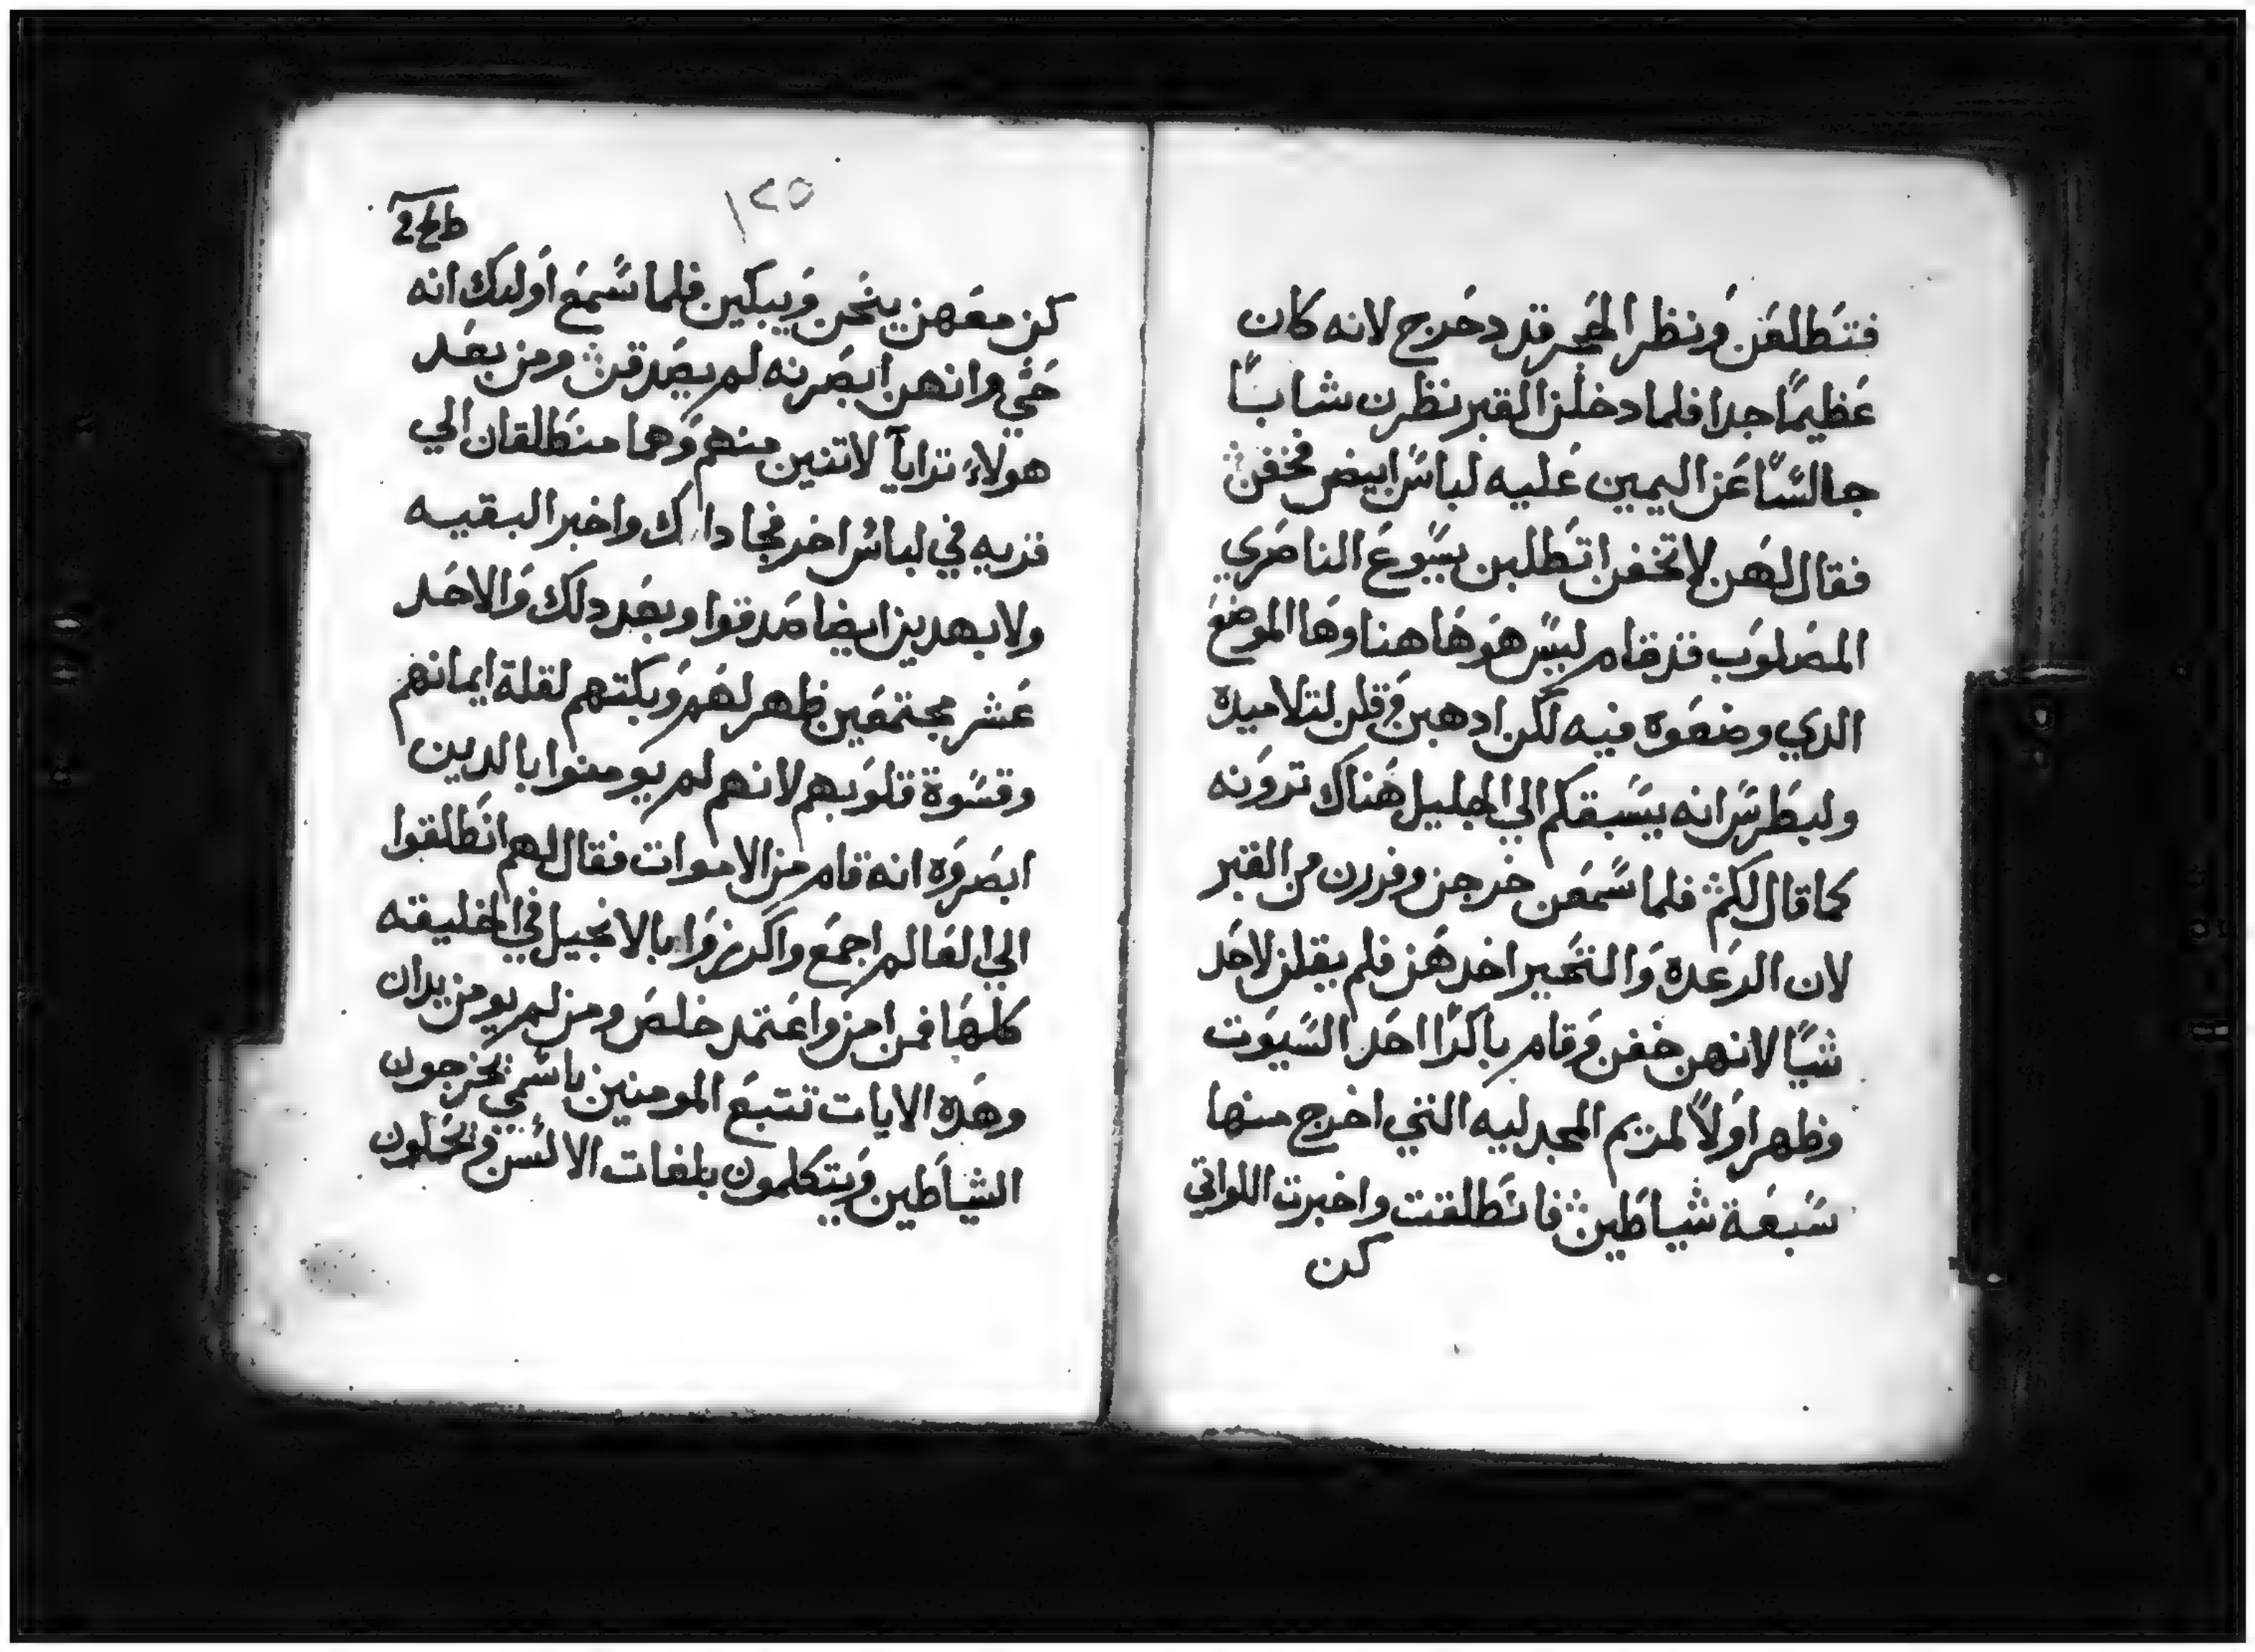 فتطلعن ونظر الحجر قد دحرج لانه كان
عظيمًا جدا فلما دخلن القبر نظرن شابًا
جالسًا عن اليمين عليه لباس ابيض فخفن
فقال لهن لا تخفن اتطلبن يسوع الناصري
المصلوب قد قام ليس هو هاهنا وها الموضع
الدي وضعوه فيه لكن ادهبن وقلن لتلاميده
ولبطرس انه يسبقكم الي الجليل هناك ترونه
كما قال لكم فلما سمعن خرجن وفررن من القبر
لان الرعده والتحير اخدهن فلم يقلن لاحد
شيًا لانهن خفن وقام باكرًا احد السبوت
وظهر اولًا لمريم المجدليه التي اخرج منها
سبعة شياطين فانطلقت واخبرت اللواتي
كن
١٢٥
كن معهن ينحن ويبكين فلما سمع اوليك انه
حي وانهن ابصرنه لم يصدقن ومن بعد
هولاء ترايآ لاتنين منهم وهما منطلقان الي
قريه في لباس اخر فجا داك واخبر البقيه
ولا بهدين ايضا صدقوا وبعد دلك والاحد
عشر مجتمعين ظهر لهم وبكتهم لقلة ايمانهم
وقسوة قلوبهم لانهم لم يومنوا بالدين
ابصروه انه قام من الاموات فقال لهم انطلقوا
الي العالم اجمع واكرزوا بالانجيل في الخليقه
كلها فمن امن واعتمد خلص ومن لم يومن يدان
وهده الايات تتبع المومنين باسمي يخرجون
الشياطين ويتكلمون بلغات الالسن ويحملون